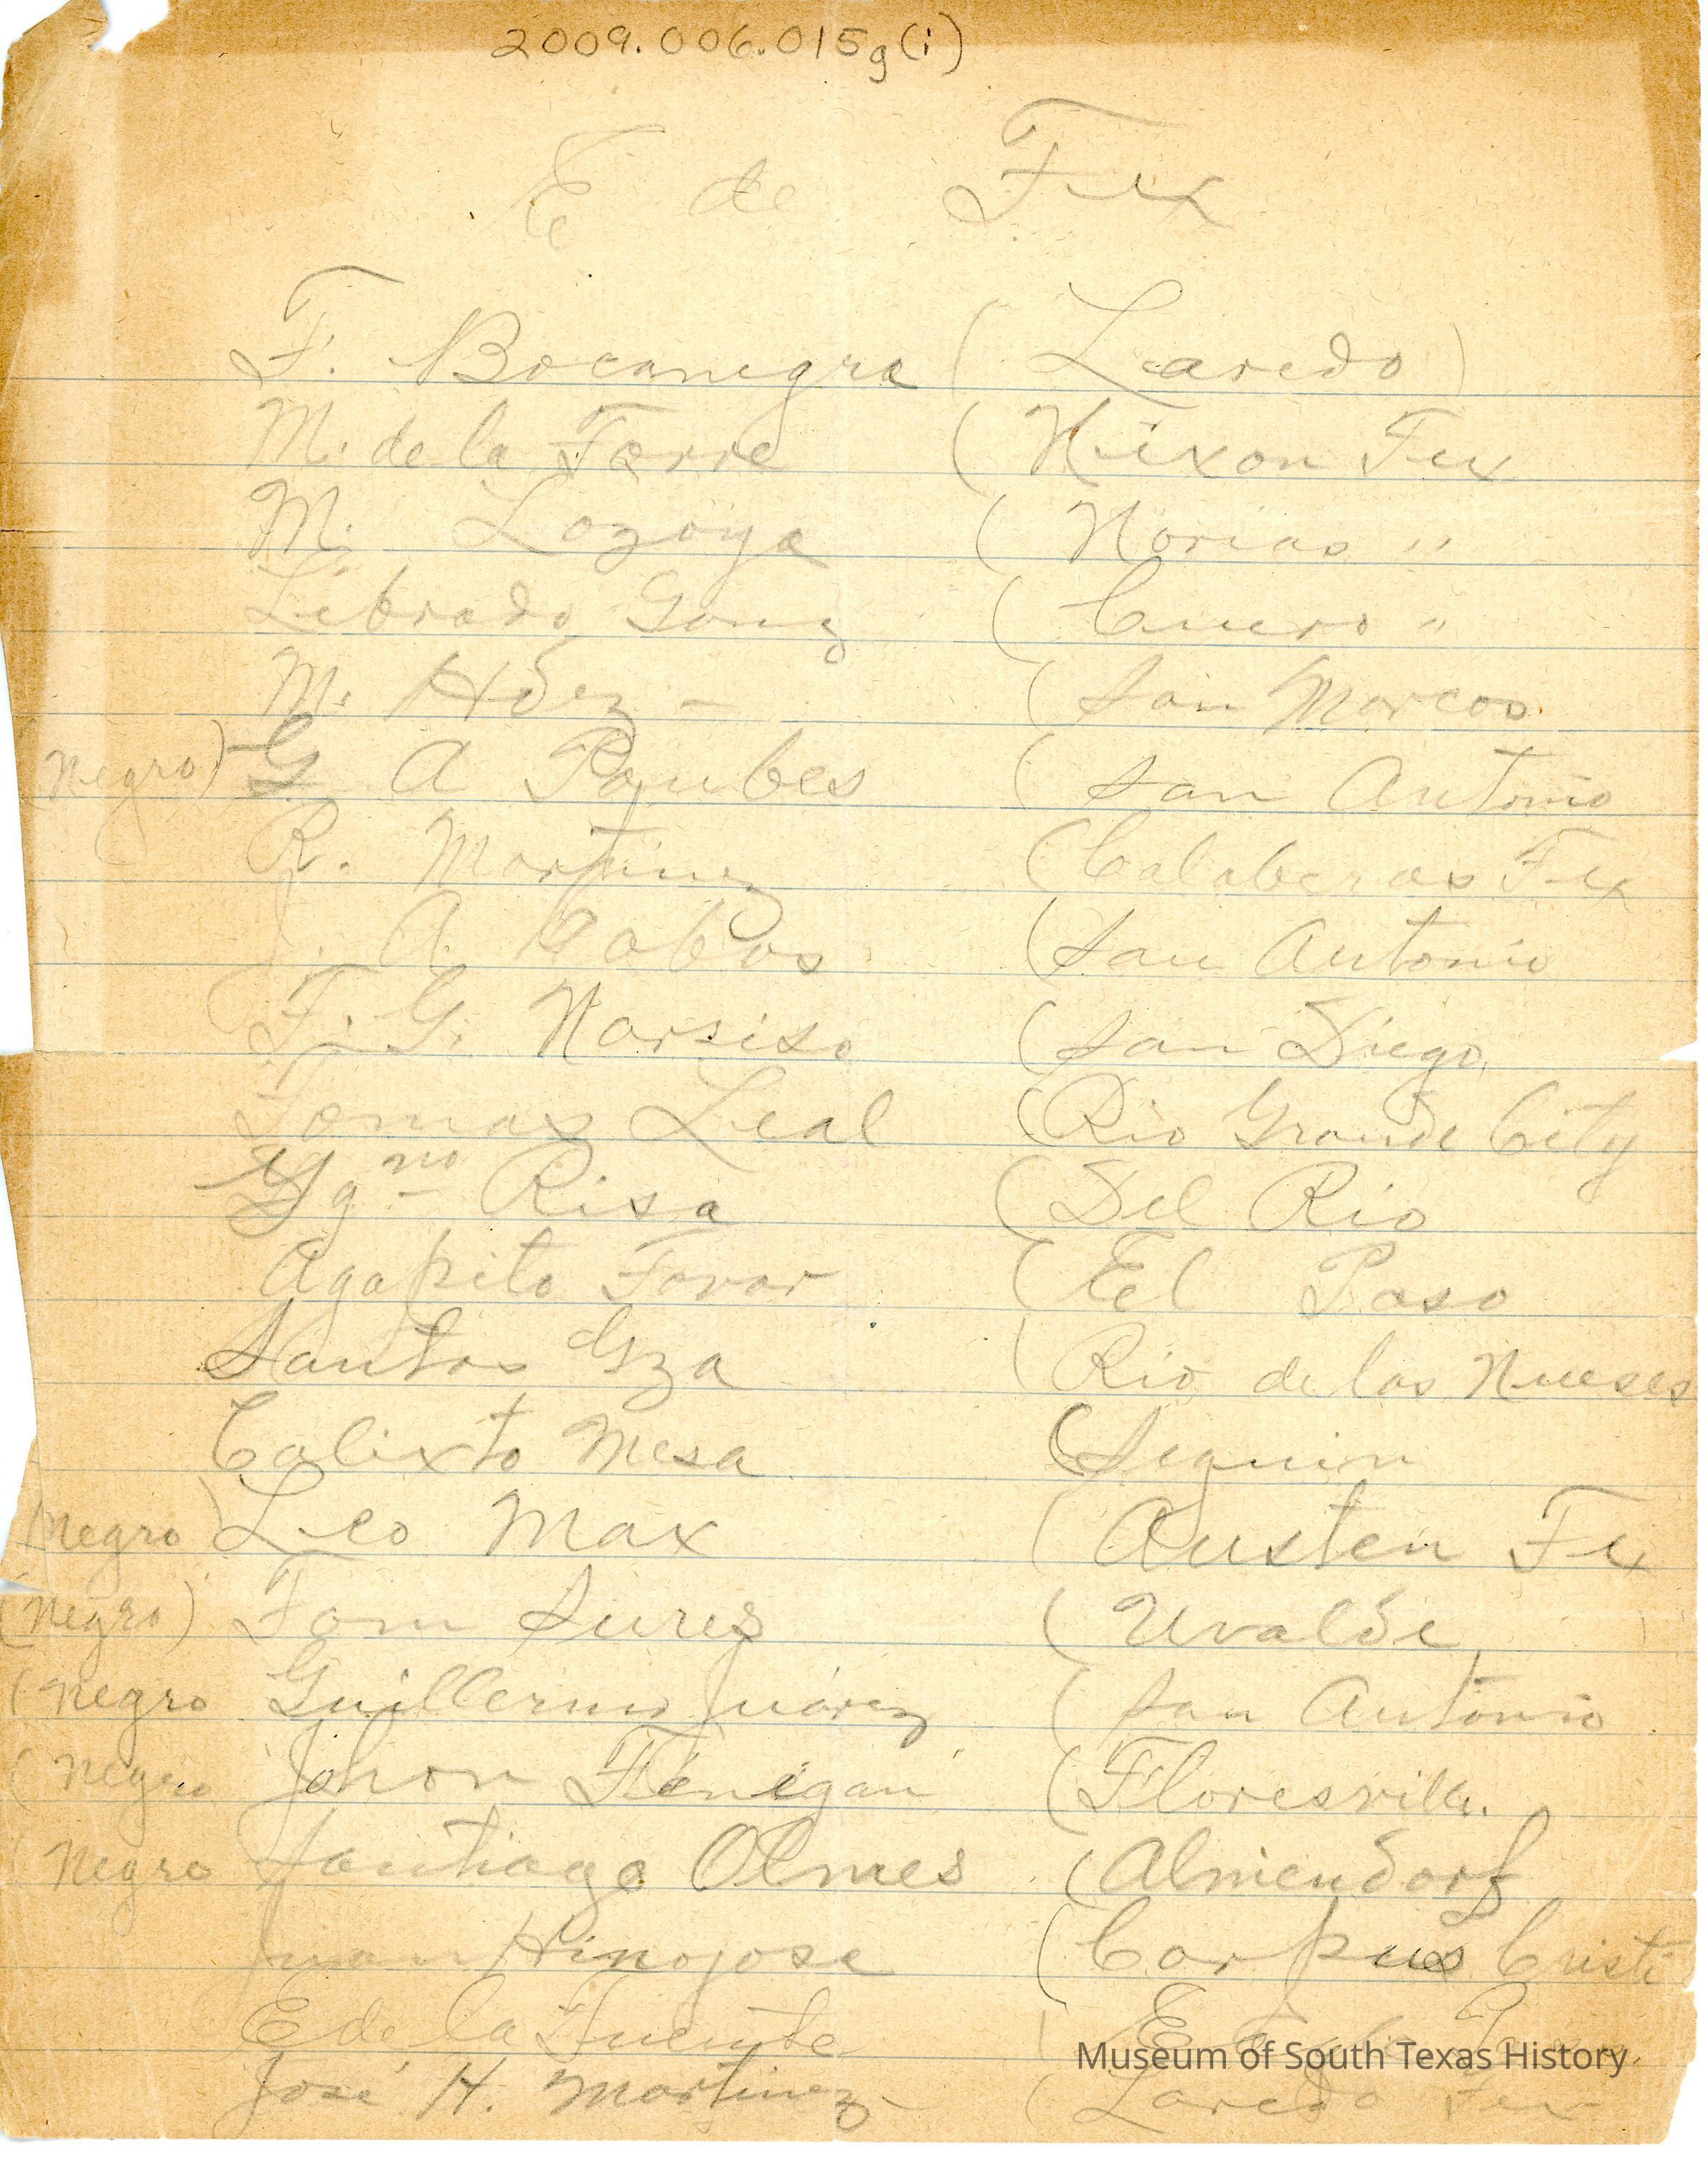 2009.006.015g(i)
E de Tex
F. Bocanegra (Laredo)
M. de la Torre (Nixon Tex
M. Lozoya (Norias "
Librado Gonz (Cuero "
M. Hdez - (San Marcos
Negro) G A Paubes (San Antonio
R. Martinez (Calaberas Tex
J. A. Cobos (San Antonio
T. G. Narsiso (San Diego
Tomas Leal (Rio Grande City
Yg no Risa (Del Rio
Agapito Tovar (El Paso
Santos Gza (Rio de las Nueses
Calixto Mesa (Seguin
(Negro) Leo Max (Austen Tex
(Negro) Tom Surez (Uvalde
(Negro Guillermo Juárez (San Antonio
(Negro Johon Fenigan (Floresville.
(Negro Santiago Olmes (Almendorf
Juan Hinojosa (Corpus Cristi
E de la Fuente (
José H. Martinez (Laredo Tex
Museum of South Texas History